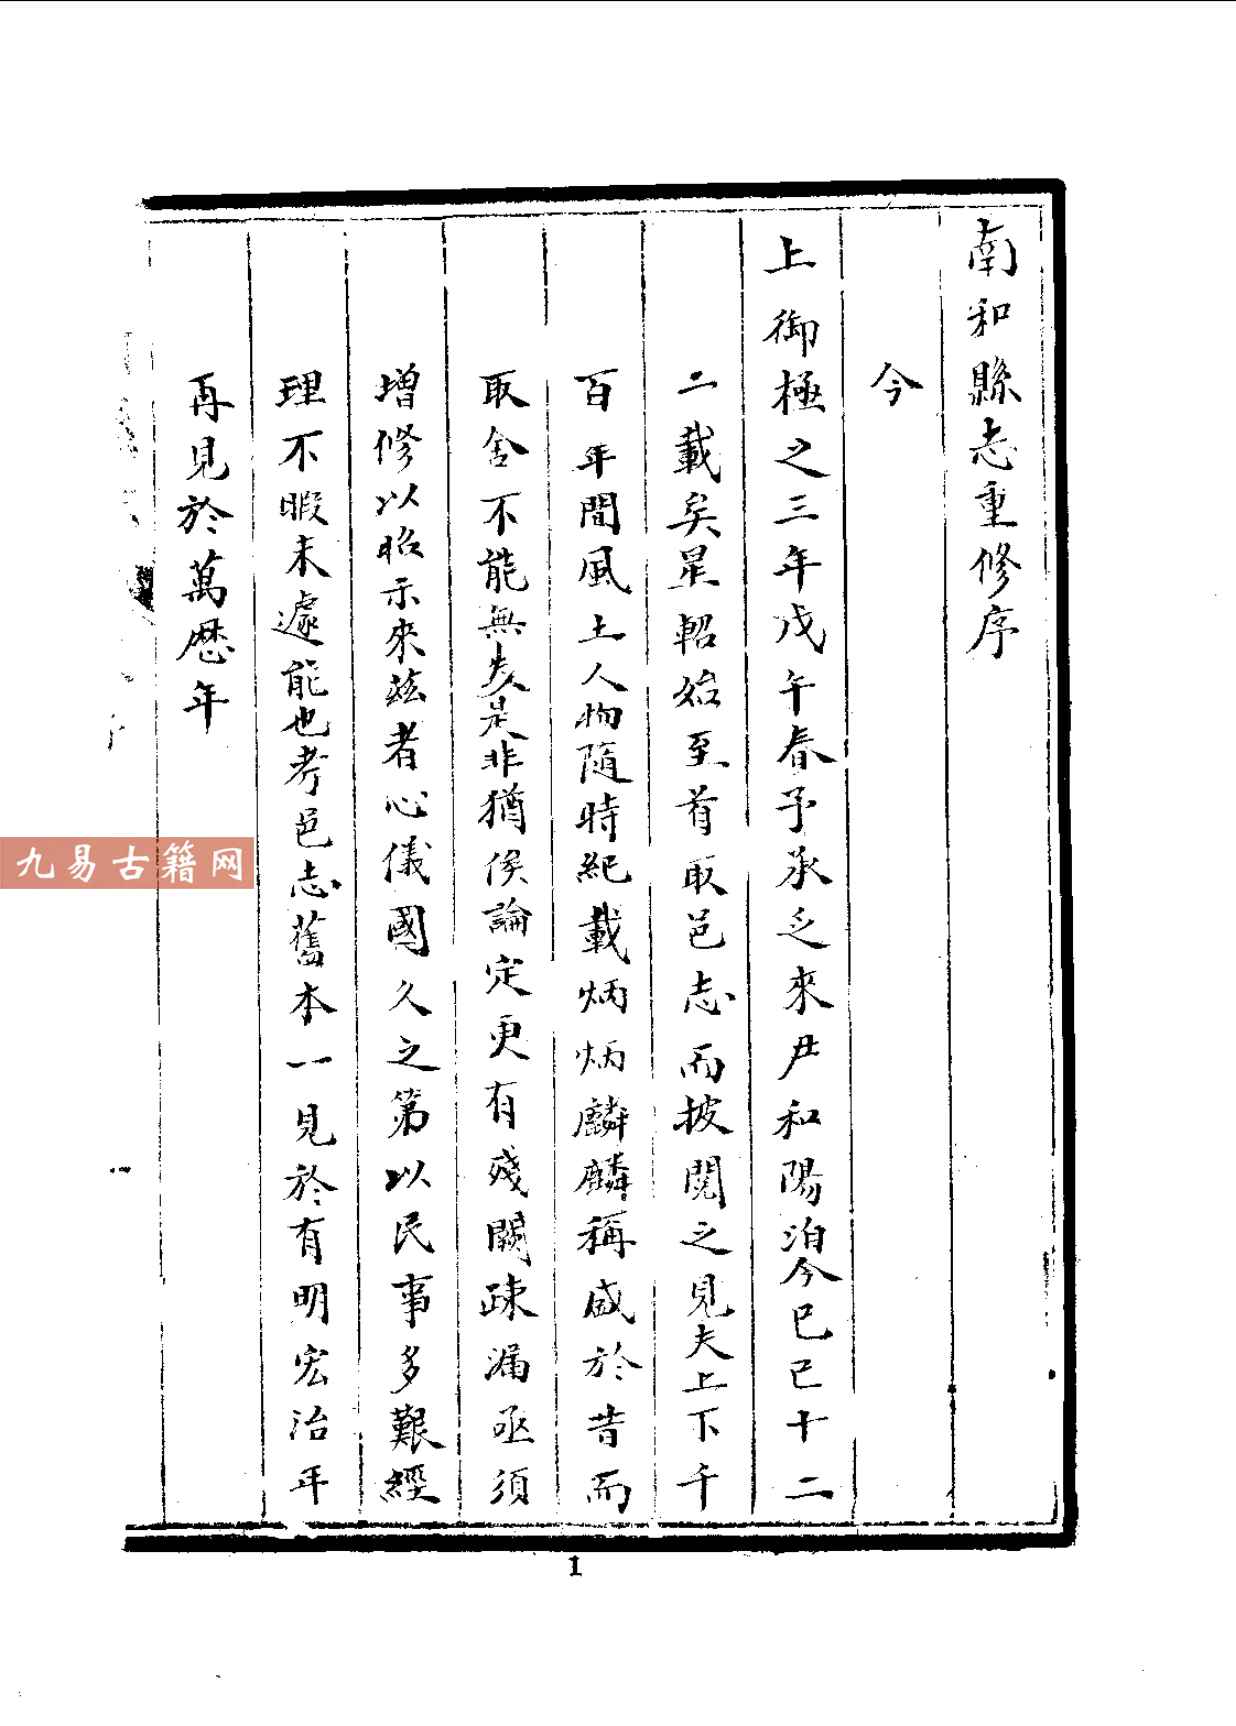 南和縣志重修序
今
上御極之三年戊午春予承乏來尹和陽洎今已巳十二
二載矣星軺始至首取邑志而披閱之見夫上下千
百年間風土人物隨時紀載炳炳麟麟稱盛於昔而
取舍不能無失是非猶俟論定更有殘闕踈漏亟須
增修以昭示來茲者心儀國久之第以民事多艱經
理不暇未遽能也考邑志舊本一見於有明宏治年
再見於萬歷年
九易古籍网
1